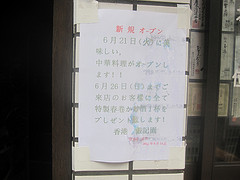 新規オープン
6月21日(火)に美
味しい。
中華料理がオープンし
ます!!
6月26日(日)までご
来店のお客様に全て
特製春巻
プレゼント致します!
香港